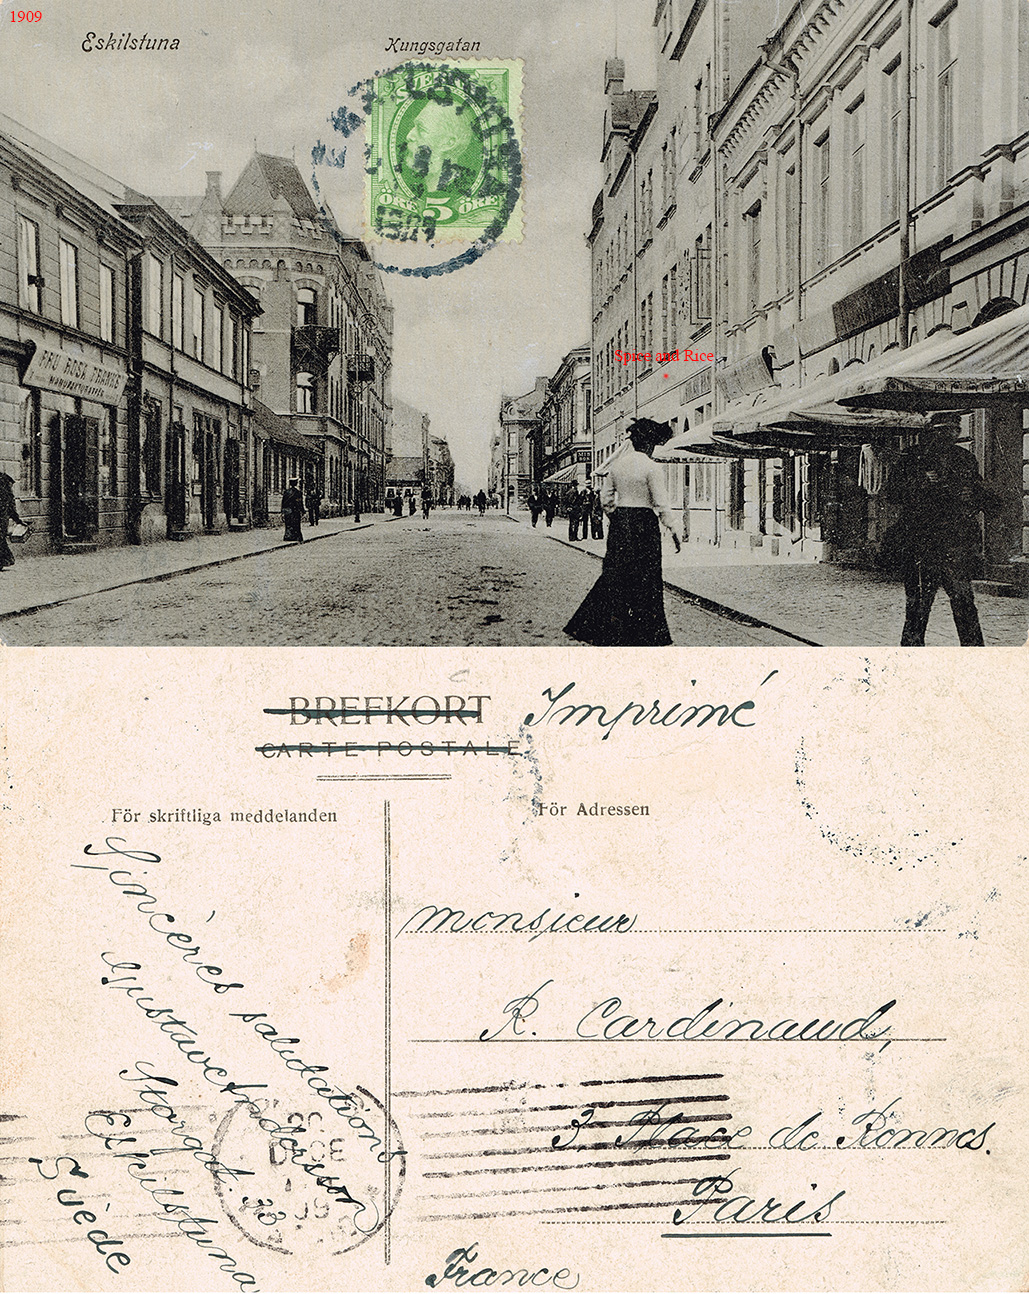 1909
Eskilstuna
Kungsgatan
SVERIGE
5
ÖRE ÖRE
FRU ROSA FRANKE
MANUFAKTURAFFÄR
Spice and Rice
BREFKORT
CARTE POSTALE
Imprimé
För skriftliga meddelanden
För Adressen
Sincères salutations
Gustave
Storgat. 33
Eskilstuna
Suède
monsieur
R. Cardinaud,
3, Place de Rennes.
Paris
France